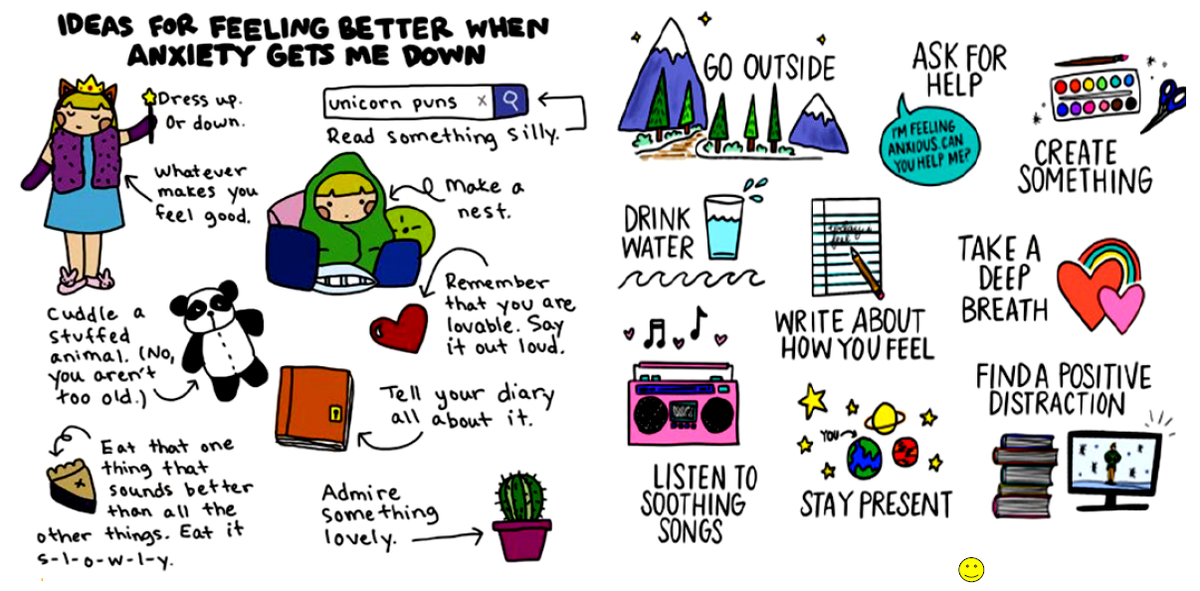 IDEAS FOR FEELING BETTER WHEN
ANXIETY GETS ME DOWN
Dress up.
Or down.
Whatever
makes you
feel good.
unicorn puns x
Read something silly.
Make a
nest.
Remember
that you are
lovable. Say
it out loud.
Cuddle a
stuffed
animal. (No,
you aren't
too old.)
Tell your diary
all about it.
Eat that one
thing that
sounds better
than all the
other things. Eat it
s-l-o-w-l-y.
Admire
something
lovely.
GO OUTSIDE
ASK FOR
HELP
I'M FEELING
ANXIOUS. CAN
YOU HELP ME?
CREATE
SOMETHING
DRINK
WATER
feel
WRITE ABOUT
HOW YOU FEEL
TAKE A
DEEP
BREATH
LISTEN TO
SOOTHING
SONGS
YOU
STAY PRESENT
FIND A POSITIVE
DISTRACTION